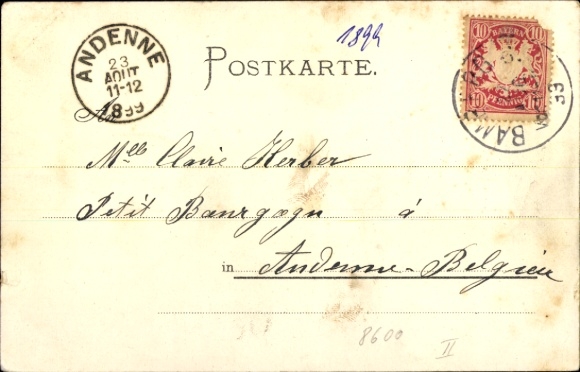 1899
ANDENNE
23
AOUT
11-12
1899
POSTKARTE.
BAYERN
10 10
PFENNIG
An
Mlle Claire Herber
Petit Bourgogn à
in Andenne-Belgien
8600
II